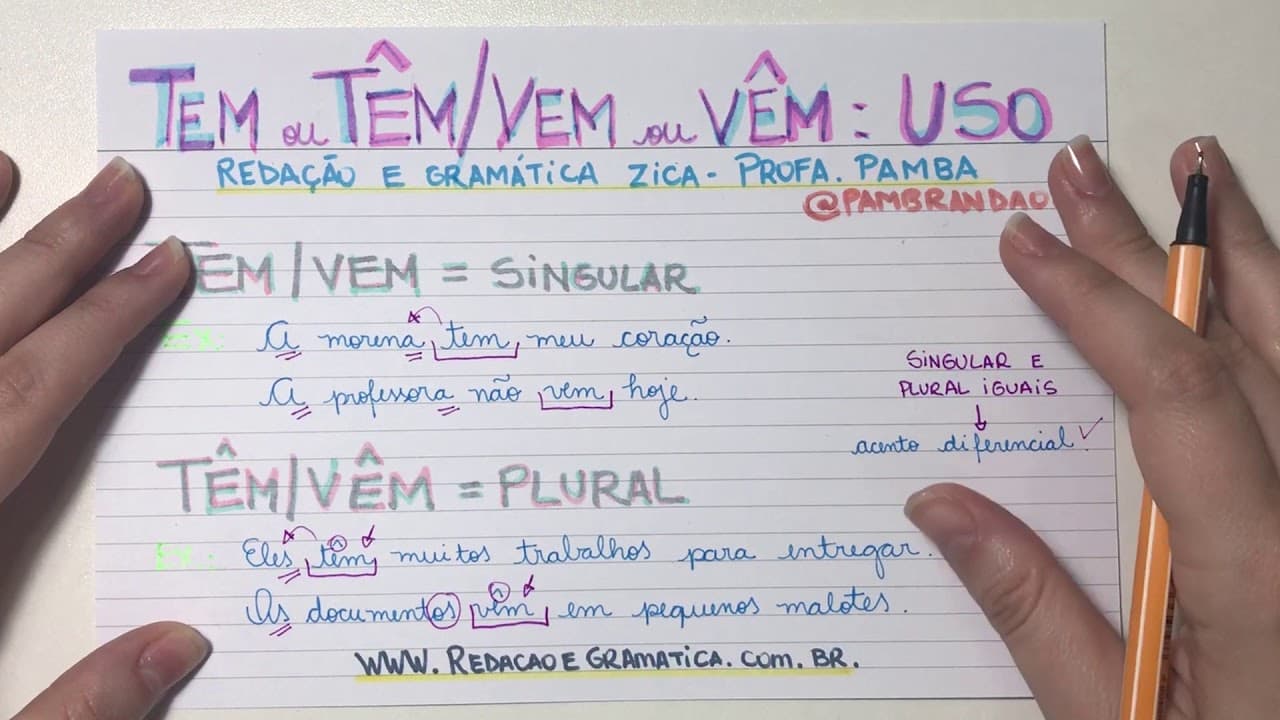 TEM ou TÊM/VEM ou VÊM: USO
REDAÇÃO E GRAMÁTICA ZICA- PROFA. PAMBA
@PAMBRANDAO
TEM/VEM = SINGULAR
Ex: A morena tem meu coração.
A professora não vem hoje.
SINGULAR E
PLURAL IGUAIS
acento diferencial
TÊM/VÊM = PLURAL
Ex.: Eles têm muitos trabalhos para entregar.
Os documentos vêm em pequenos malotes.
WWW.REDACAOEGRAMATICA.COM.BR.